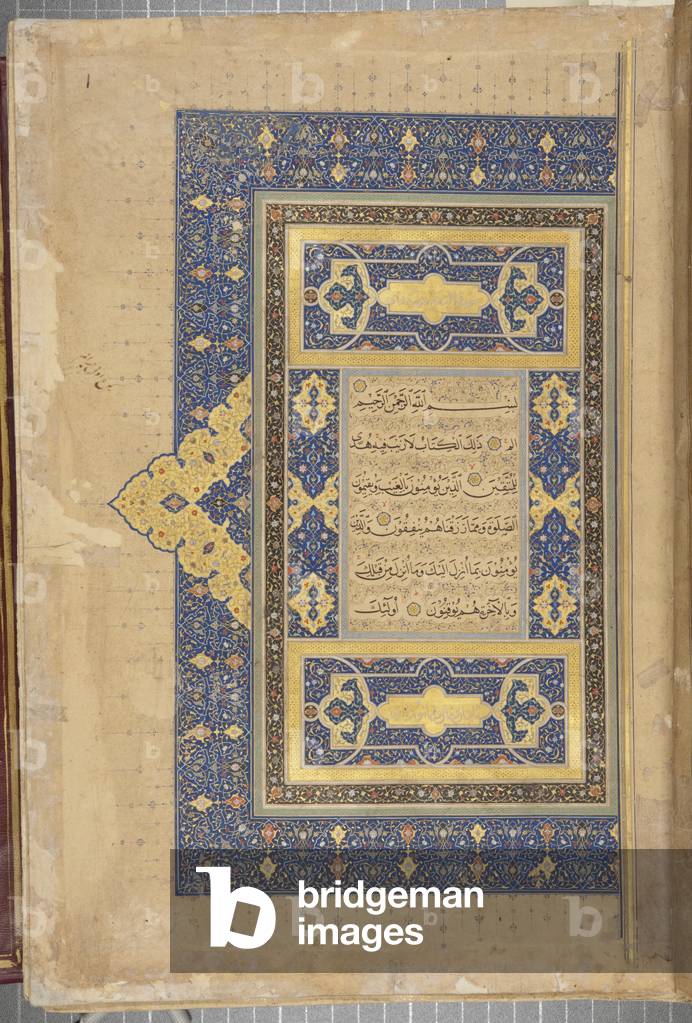 بسم الله الرحمن الرحيم
الم ذلك الكتاب لا ريب فيه هدى
للمتقين الذين يؤمنون بالغيب ويقيمون
الصلوة ومما رزقناهم ينفقون والذين
يؤمنون بما أنزل اليك وما أنزل من قبلك
وبالآخرة هم يوقنون أولئك
bridgeman
images